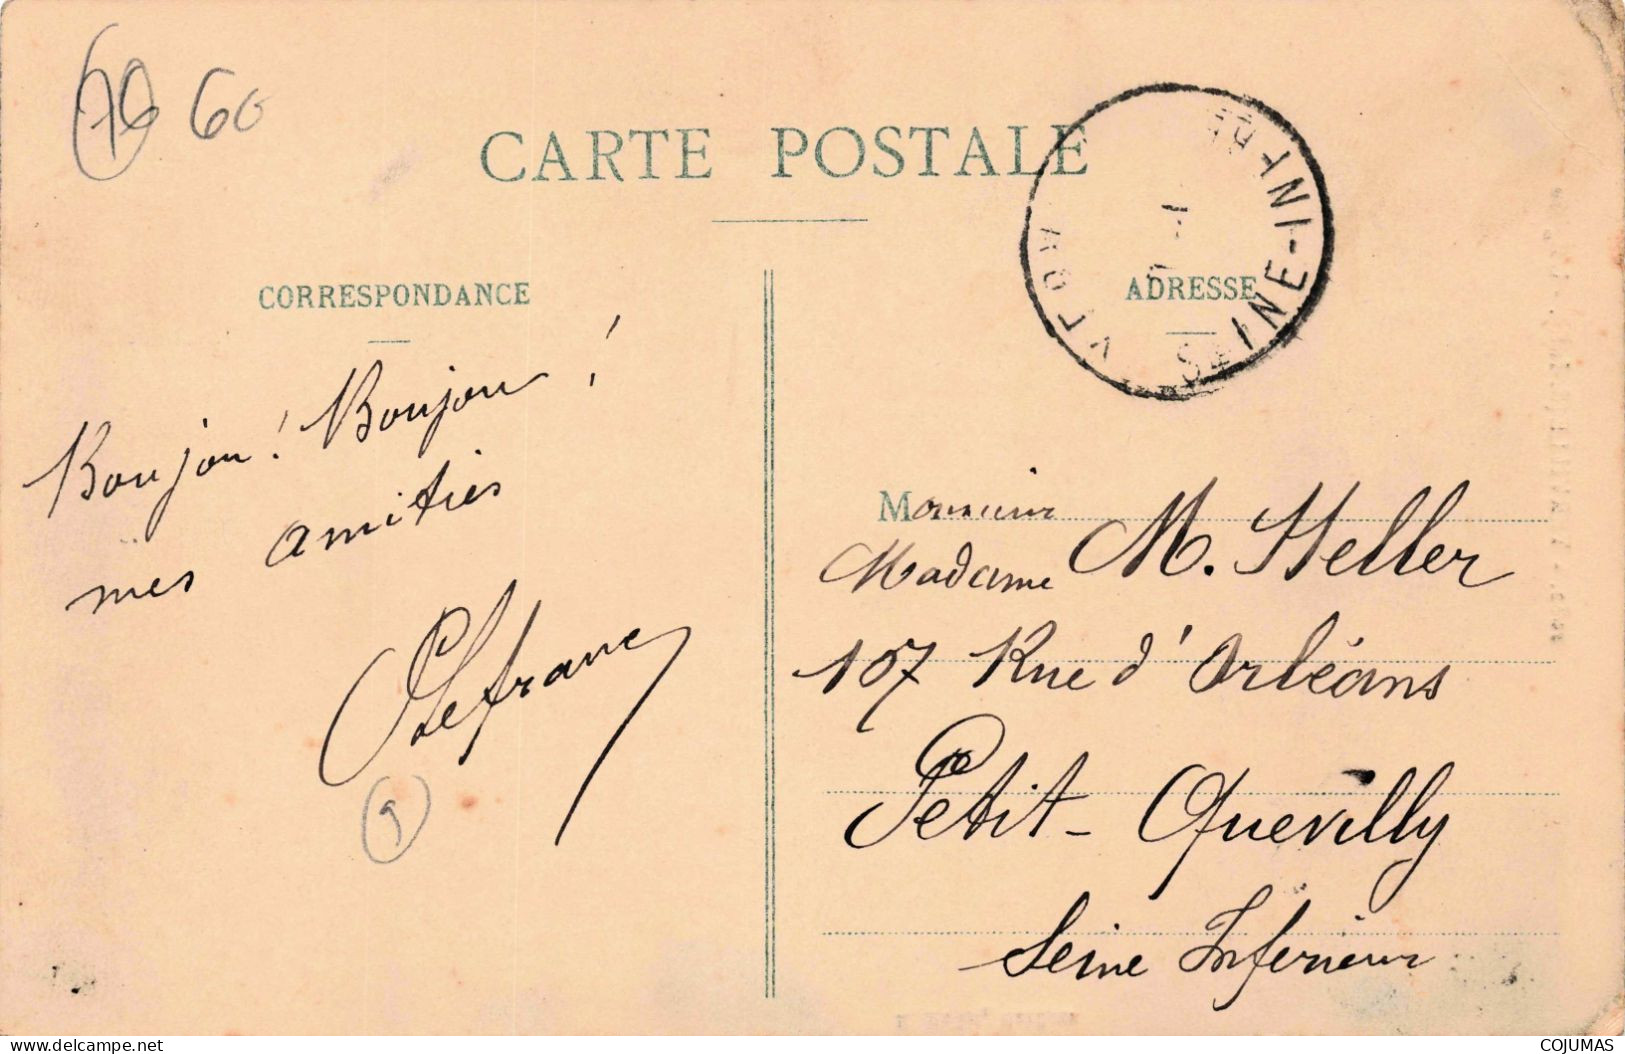 76 60
CARTE POSTALE
CORRESPONDANCE
ADRESSE
SEINE-INFRE
Boujou! Boujou!
mes amitiés
Lefranc
9
Monsieur
Madame M. Heller
107 Rue d'Orléans
Petit-Quevilly
Seine Inferieur
www.delcampe.net
COJUMAS